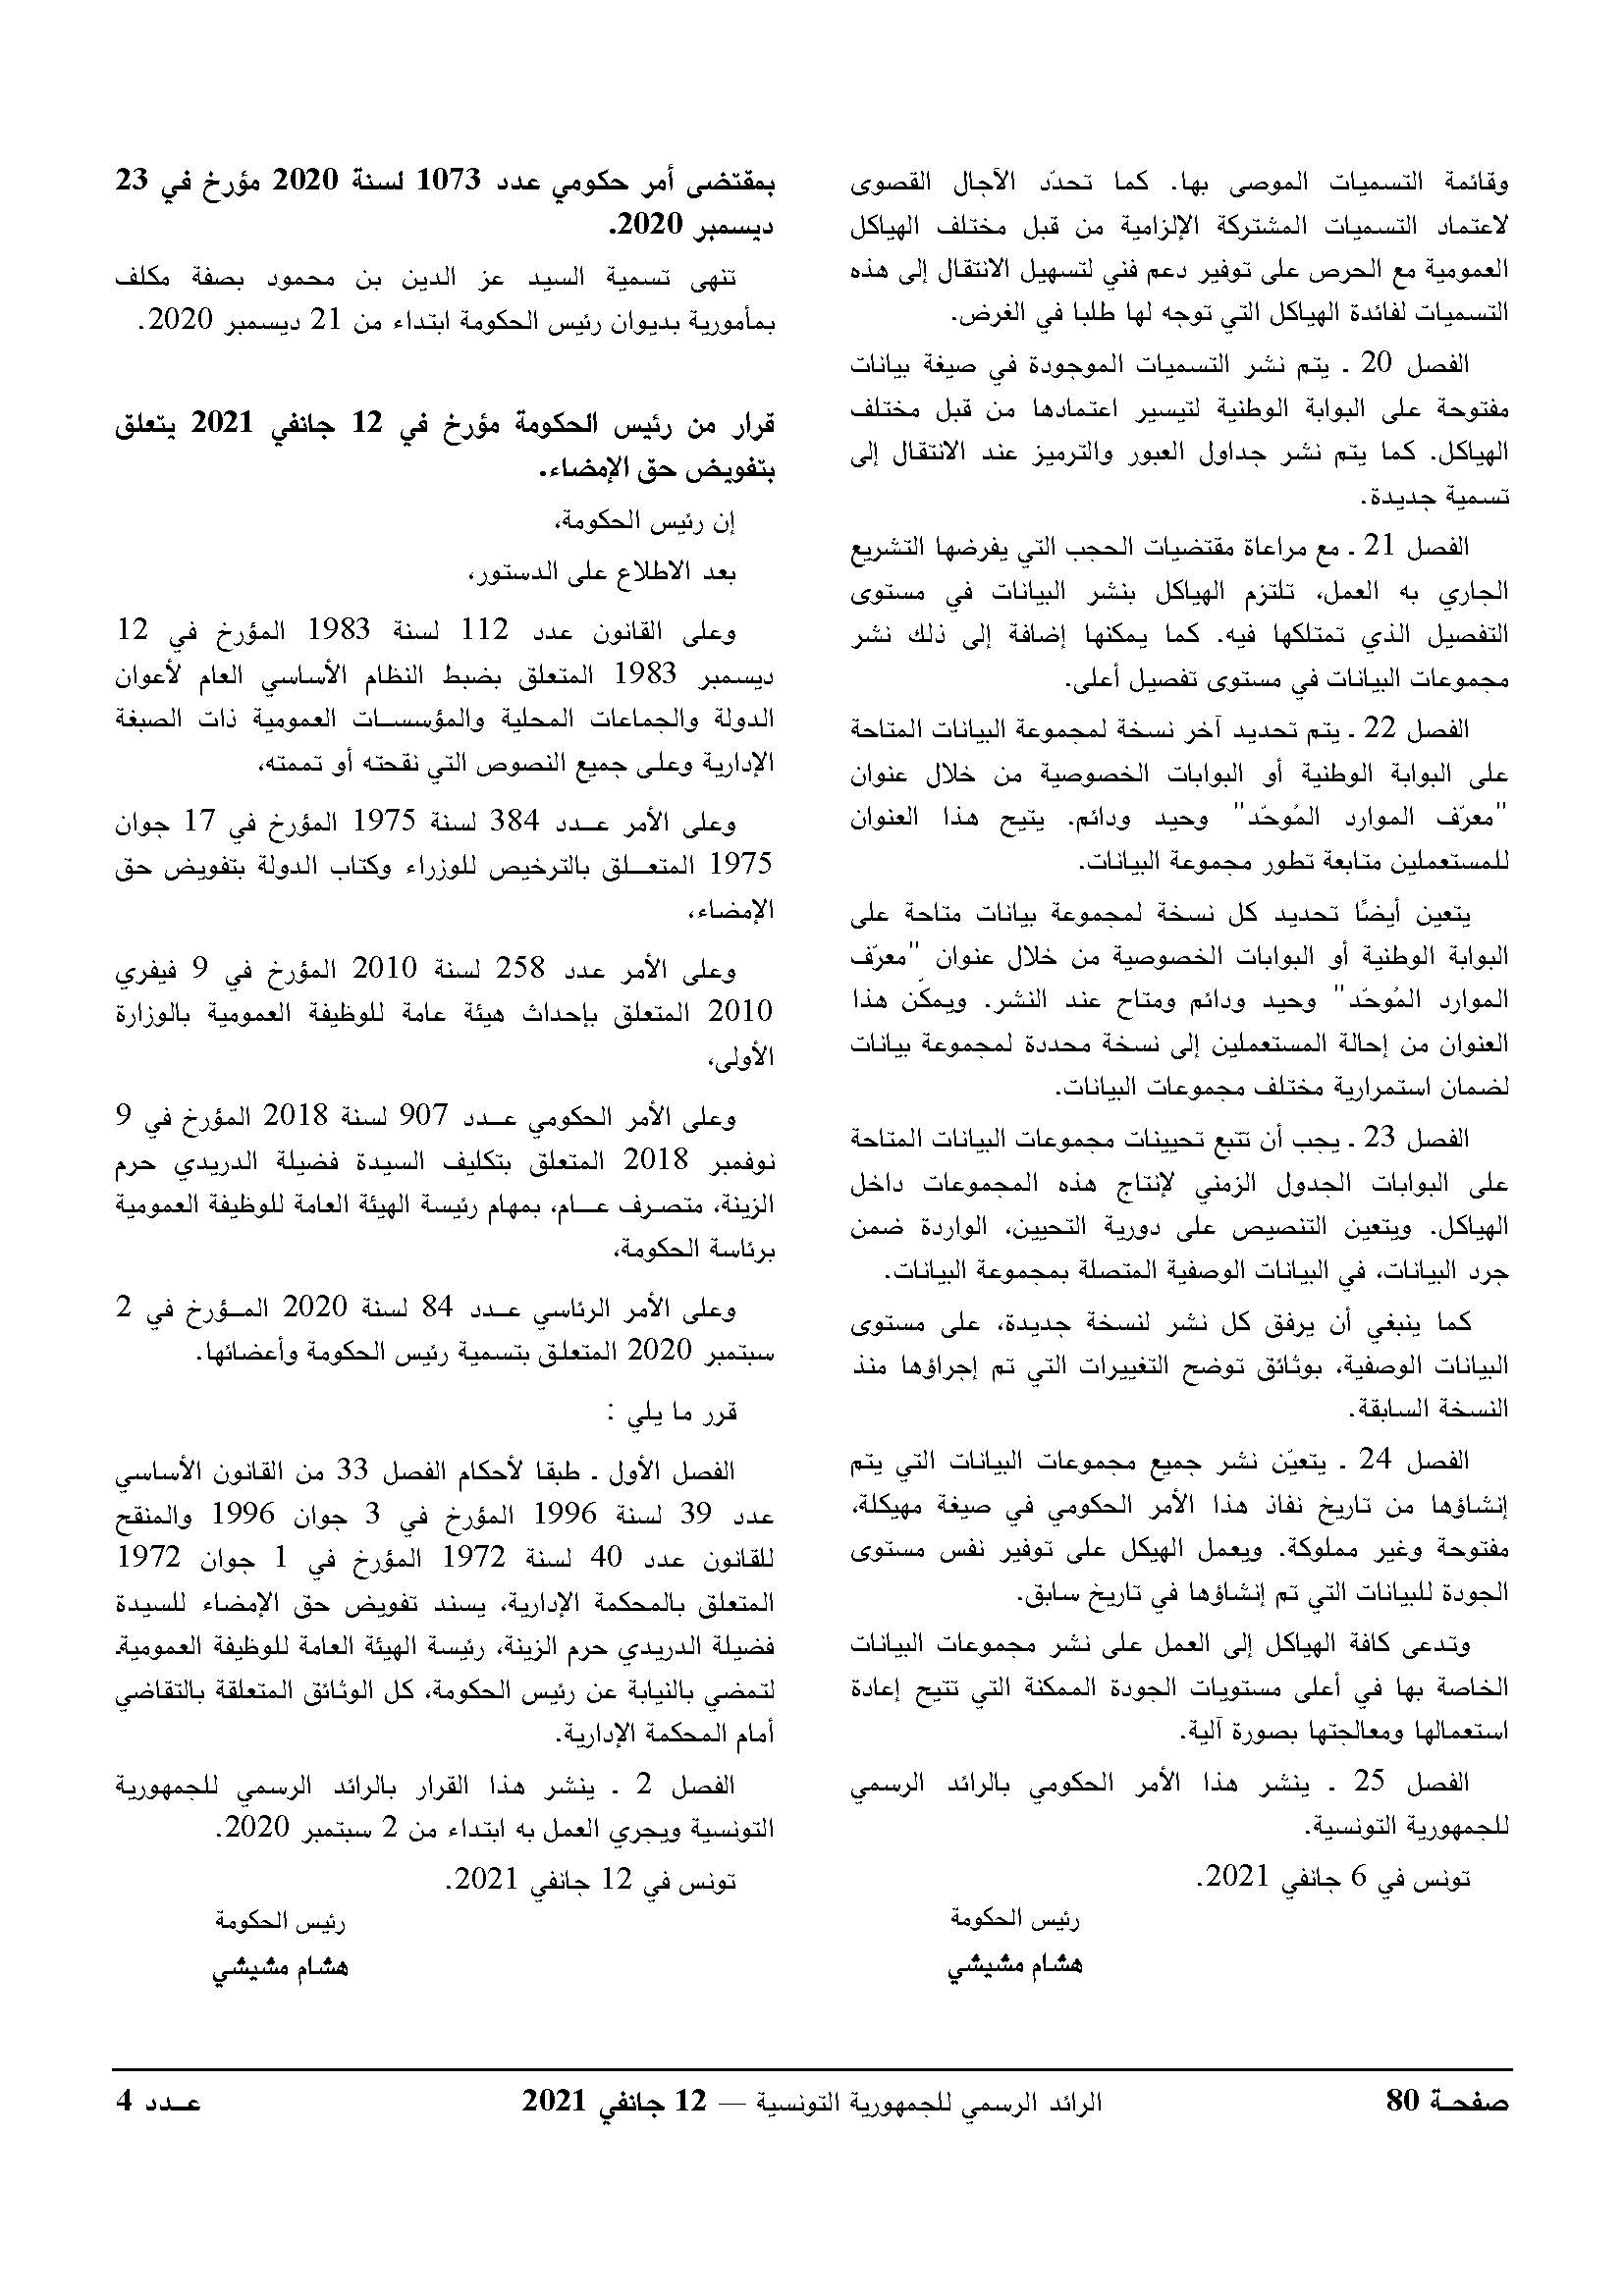 وقائمة التسميات الموصى بها. كما تحدّد الآجال القصوى
لاعتماد التسميات المشتركة الإلزامية من قبل مختلف الهياكل
العمومية مع الحرص على توفير دعم فني لتسهيل الانتقال إلى هذه
التسميات لفائدة الهياكل التي توجه لها طلبا في الغرض.
الفصل 20 ـ يتم نشر التسميات الموجودة في صيغة بيانات
مفتوحة على البوابة الوطنية لتيسير اعتمادها من قبل مختلف
الهياكل. كما يتم نشر جداول العبور والترميز عند الانتقال إلى
تسمية جديدة.
الفصل 21 ـ مع مراعاة مقتضيات الحجب التي يفرضها التشريع
الجاري به العمل، تلتزم الهياكل بنشر البيانات في مستوى
التفصيل الذي تمتلكها فيه. كما يمكنها إضافة إلى ذلك نشر
مجموعات البيانات في مستوى تفصيل أعلى.
الفصل 22 ـ يتم تحديد آخر نسخة لمجموعة البيانات المتاحة
على البوابة الوطنية أو البوابات الخصوصية من خلال عنوان
"معرّف الموارد المُوحّد" وحيد ودائم. يتيح هذا العنوان
للمستعملين متابعة تطور مجموعة البيانات.
يتعين أيضًا تحديد كل نسخة لمجموعة بيانات متاحة على
البوابة الوطنية أو البوابات الخصوصية من خلال عنوان "معرّف
الموارد المُوحّد" وحيد ودائم ومتاح عند النشر. ويمكّن هذا
العنوان من إحالة المستعملين إلى نسخة محددة لمجموعة بيانات
لضمان استمرارية مختلف مجموعات البيانات.
الفصل 23 ـ يجب أن تتبع تحيينات مجموعات البيانات المتاحة
على البوابات الجدول الزمني لإنتاج هذه المجموعات داخل
الهياكل. ويتعين التنصيص على دورية التحيين، الواردة ضمن
جرد البيانات، في البيانات الوصفية المتصلة بمجموعة البيانات.
كما ينبغي أن يرفق كل نشر لنسخة جديدة، على مستوى
البيانات الوصفية، بوثائق توضح التغييرات التي تم إجراؤها منذ
النسخة السابقة.
الفصل 24 ـ يتعيّن نشر جميع مجموعات البيانات التي يتم
إنشاؤها من تاريخ نفاذ هذا الأمر الحكومي في صيغة مهيكلة،
مفتوحة وغير مملوكة. ويعمل الهيكل على توفير نفس مستوى
الجودة للبيانات التي تم إنشاؤها في تاريخ سابق.
وتدعى كافة الهياكل إلى العمل على نشر مجموعات البيانات
الخاصة بها في أعلى مستويات الجودة الممكنة التي تتيح إعادة
استعمالها ومعالجتها بصورة آلية.
الفصل 25 ـ ينشر هذا الأمر الحكومي بالرائد الرسمي
للجمهورية التونسية.
تونس في 6 جانفي 2021.
رئيس الحكومة
هشام مشيشي
بمقتضى أمر حكومي عدد 1073 لسنة 2020 مؤرخ في 23
ديسمبر 2020.
تنهى تسمية السيد عز الدين بن محمود بصفة مكلف
بمأمورية بديوان رئيس الحكومة ابتداء من 21 ديسمبر 2020.
قرار من رئيس الحكومة مؤرخ في 12 جانفي 2021 يتعلق
بتفويض حق الإمضاء.
إن رئيس الحكومة،
بعد الاطلاع على الدستور،
وعلى القانون عدد 112 لسنة 1983 المؤرخ في 12
ديسمبر 1983 المتعلق بضبط النظام الأساسي العام لأعوان
الدولة والجماعات المحلية والمؤسسات العمومية ذات الصبغة
الإدارية وعلى جميع النصوص التي نقحته أو تممته،
وعلى الأمر عـدد 384 لسنة 1975 المؤرخ في 17 جوان
1975 المتعـلق بالترخيص للوزراء وكتاب الدولة بتفويض حق
الإمضاء،
وعلى الأمر عدد 258 لسنة 2010 المؤرخ في 9 فيفري
2010 المتعلق بإحداث هيئة عامة للوظيفة العمومية بالوزارة
الأولى،
وعلى الأمر الحكومي عـدد 907 لسنة 2018 المؤرخ في 9
نوفمبر 2018 المتعلق بتكليف السيدة فضيلة الدريدي حرم
الزينة، متصرف عـام، بمهام رئيسة الهيئة العامة للوظيفة العمومية
برئاسة الحكومة،
وعلى الأمر الرئاسي عـدد 84 لسنة 2020 المـؤرخ في 2
سبتمبر 2020 المتعلق بتسمية رئيس الحكومة وأعضائها.
قرر ما يلي :
الفصل الأول ـ طبقا لأحكام الفصل 33 من القانون الأساسي
عدد 39 لسنة 1996 المؤرخ في 3 جوان 1996 والمنقح
للقانون عدد 40 لسنة 1972 المؤرخ في 1 جوان 1972
المتعلق بالمحكمة الإدارية، يسند تفويض حق الإمضاء للسيدة
فضيلة الدريدي حرم الزينة، رئيسة الهيئة العامة للوظيفة العمومية
لتمضي بالنيابة عن رئيس الحكومة، كل الوثائق المتعلقة بالتقاضي
أمام المحكمة الإدارية.
الفصل 2 ـ ينشر هذا القرار بالرائد الرسمي للجمهورية
التونسية ويجري العمل به ابتداء من 2 سبتمبر 2020.
تونس في 12 جانفي 2021.
رئيس الحكومة
هشام مشيشي
صفحـة 80 الرائد الرسمي للجمهورية التونسية — 12 جانفي 2021 عـدد 4